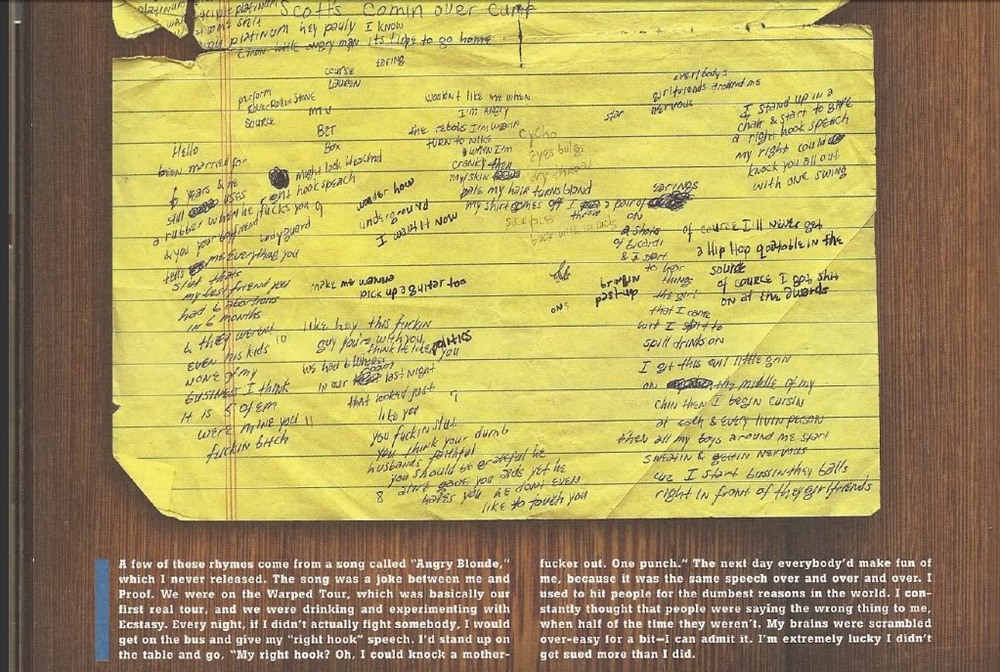 Scotts Comin over cuz
platinum hey pauly I know
its time to go home
course
Lauren
perform
cover Rollin Stone
Source
MTV
BET
Box
Hello
been married for
6 years & he
still uses
a rubber when he fucks you 9
& you your boyfriend
tells me everything you
slut thats
my best friend you
had 6 abortions
in 6 months
& they werent
even his kids 10
none of my
business I think
it is 5 of em
were mine you 11
fuckin bitch
might look
right hook speach
bodyguard
underground
I hit em now
make me wanna
like hey this fuckin
guy you're with you
think he likes you
politics
we had a
in our last night
that looked just 7
like you
you fuckin slut
you think your dumb
husbands faithful
you should be grateful he
8 aint gave you aids yet he
hates you he dont even
like to touch you
wouldnt like me when
I'm angry
the I'm wearin
turn to Nike
when I'm
cranky then
my skin
pale my hair turns blond
my shirt comes off I a pair of
cycho
eyes bulge
dry throat
earings
throw on
6 shots
of Bacardi
& I start
to hear
things
the girl
that I came
wit I spit to
spill drinks on
I git this evil little grin
on the middle of my
chin then I begin cursin
at each & every livin person
then all my boys around me start
sweatin & gettin nervous
cuz I start bussin they balls
right in front of they girlfriends
everybodys
girlfriends around me
star
nervous
I stand up in a
chair & start to
a right hook speech
my right could
knock you all out
with one swing
of course I'll never get
a Hip Hop Quotable in the
source
of course I got this
on at the
A few of these rhymes come from a song called "Angry Blonde,"
which I never released. The song was a joke between me and
Proof. We were on the Warped Tour, which was basically our
first real tour, and we were drinking and experimenting with
Ecstasy. Every night, if I didn't actually fight somebody, I would
get on the bus and give my "right hook" speech. I'd stand up on
the table and go, "My right hook? Oh, I could knock a mother-
fucker out. One punch." The next day everybody'd make fun of
me, because it was the same speech over and over and over. I
used to hit people for the dumbest reasons in the world. I con-
stantly thought that people were saying the wrong thing to me,
when half of the time they weren't. My brains were scrambled
over-easy for a bit—I can admit it. I'm extremely lucky I didn't
get sued more than I did.